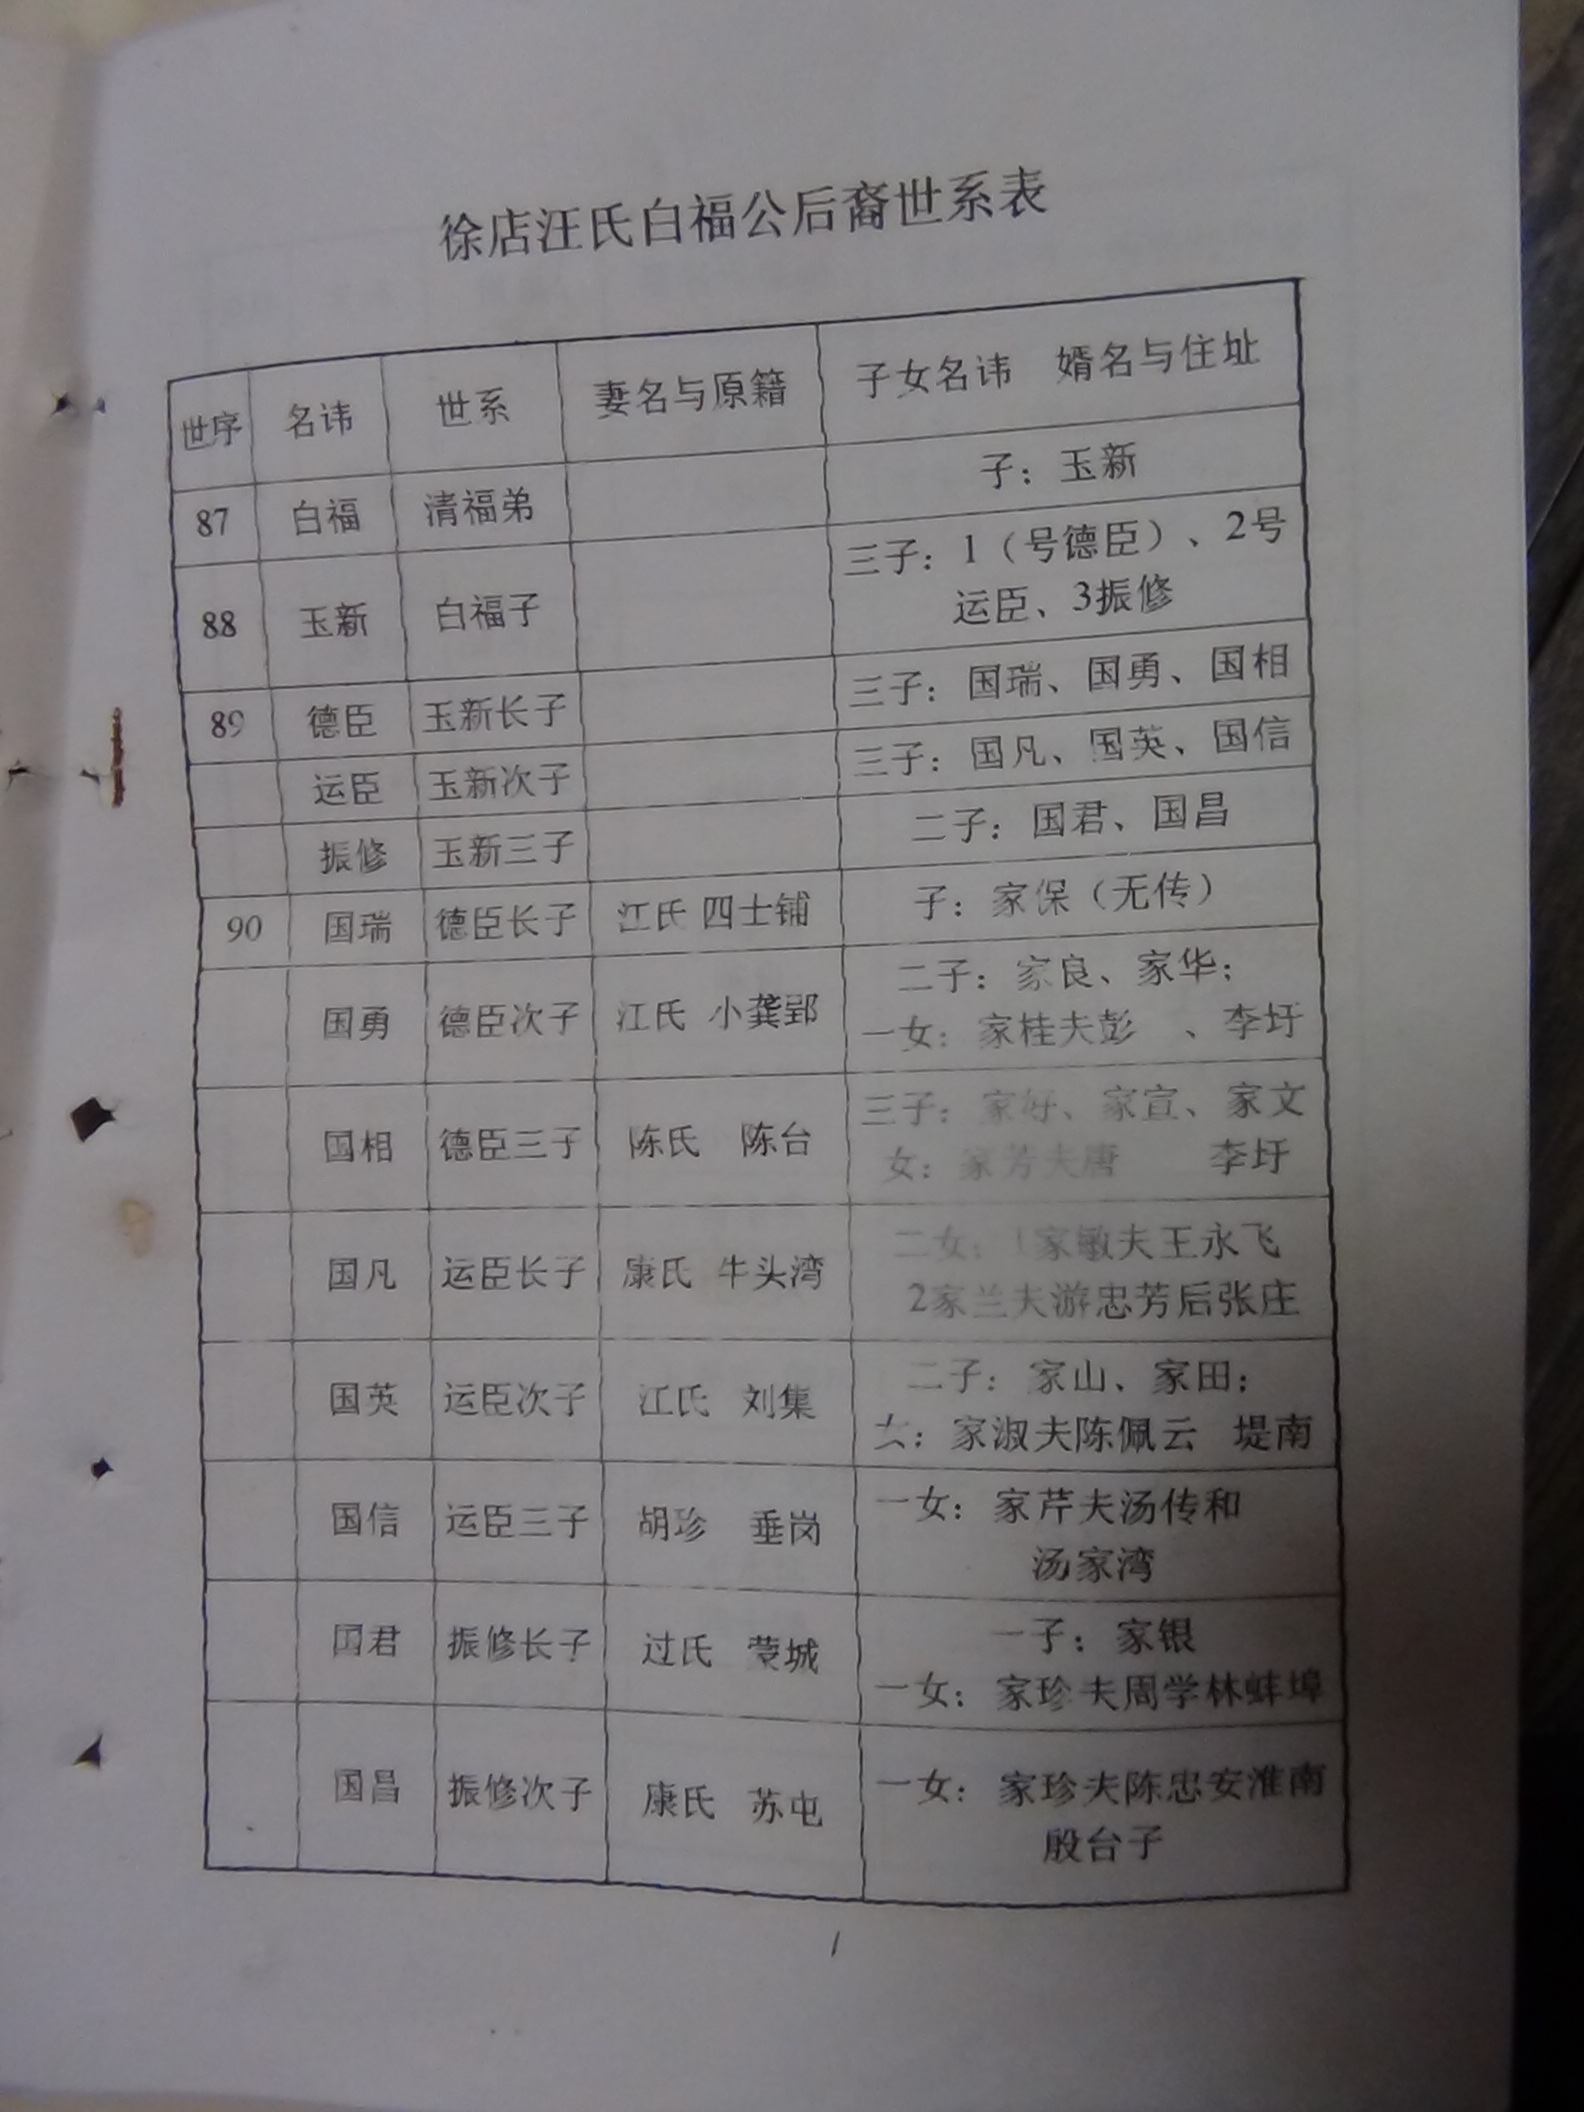 徐店汪氏白福公后裔世系表
世序 名讳 世系 妻名与原籍 子女名讳 婿名与住址
87 白福 清福弟 子：玉新
88 玉新 白福子 三子：1（号德臣）、2号
运臣、3振修
89 德臣 玉新长子 三子：国瑞、国勇、国相
运臣 玉新次子 三子：国凡、国英、国信
振修 玉新三子 二子：国君、国昌
90 国瑞 德臣长子 江氏 四士铺 子：家保（无传）
国勇 德臣次子 江氏 小龚郢 二子：家良、家华；
一女：家桂夫彭 、李圩
国相 德臣三子 陈氏 陈台 三子：家好、家宣、家文
女：家芳夫唐 李圩
国凡 运臣长子 康氏 牛头湾 二女：1家敏夫王永飞
2家兰夫游忠芳后张庄
国英 运臣次子 江氏 刘集 二子：家山、家田；
女：家淑夫陈佩云 堤南
国信 运臣三子 胡珍 垂岗 一女：家芹夫汤传和
汤家湾
国君 振修长子 过氏 蒙城 一子：家银
一女：家珍夫周学林蚌埠
国昌 振修次子 康氏 苏屯 一女：家珍夫陈忠安淮南
殷台子
1